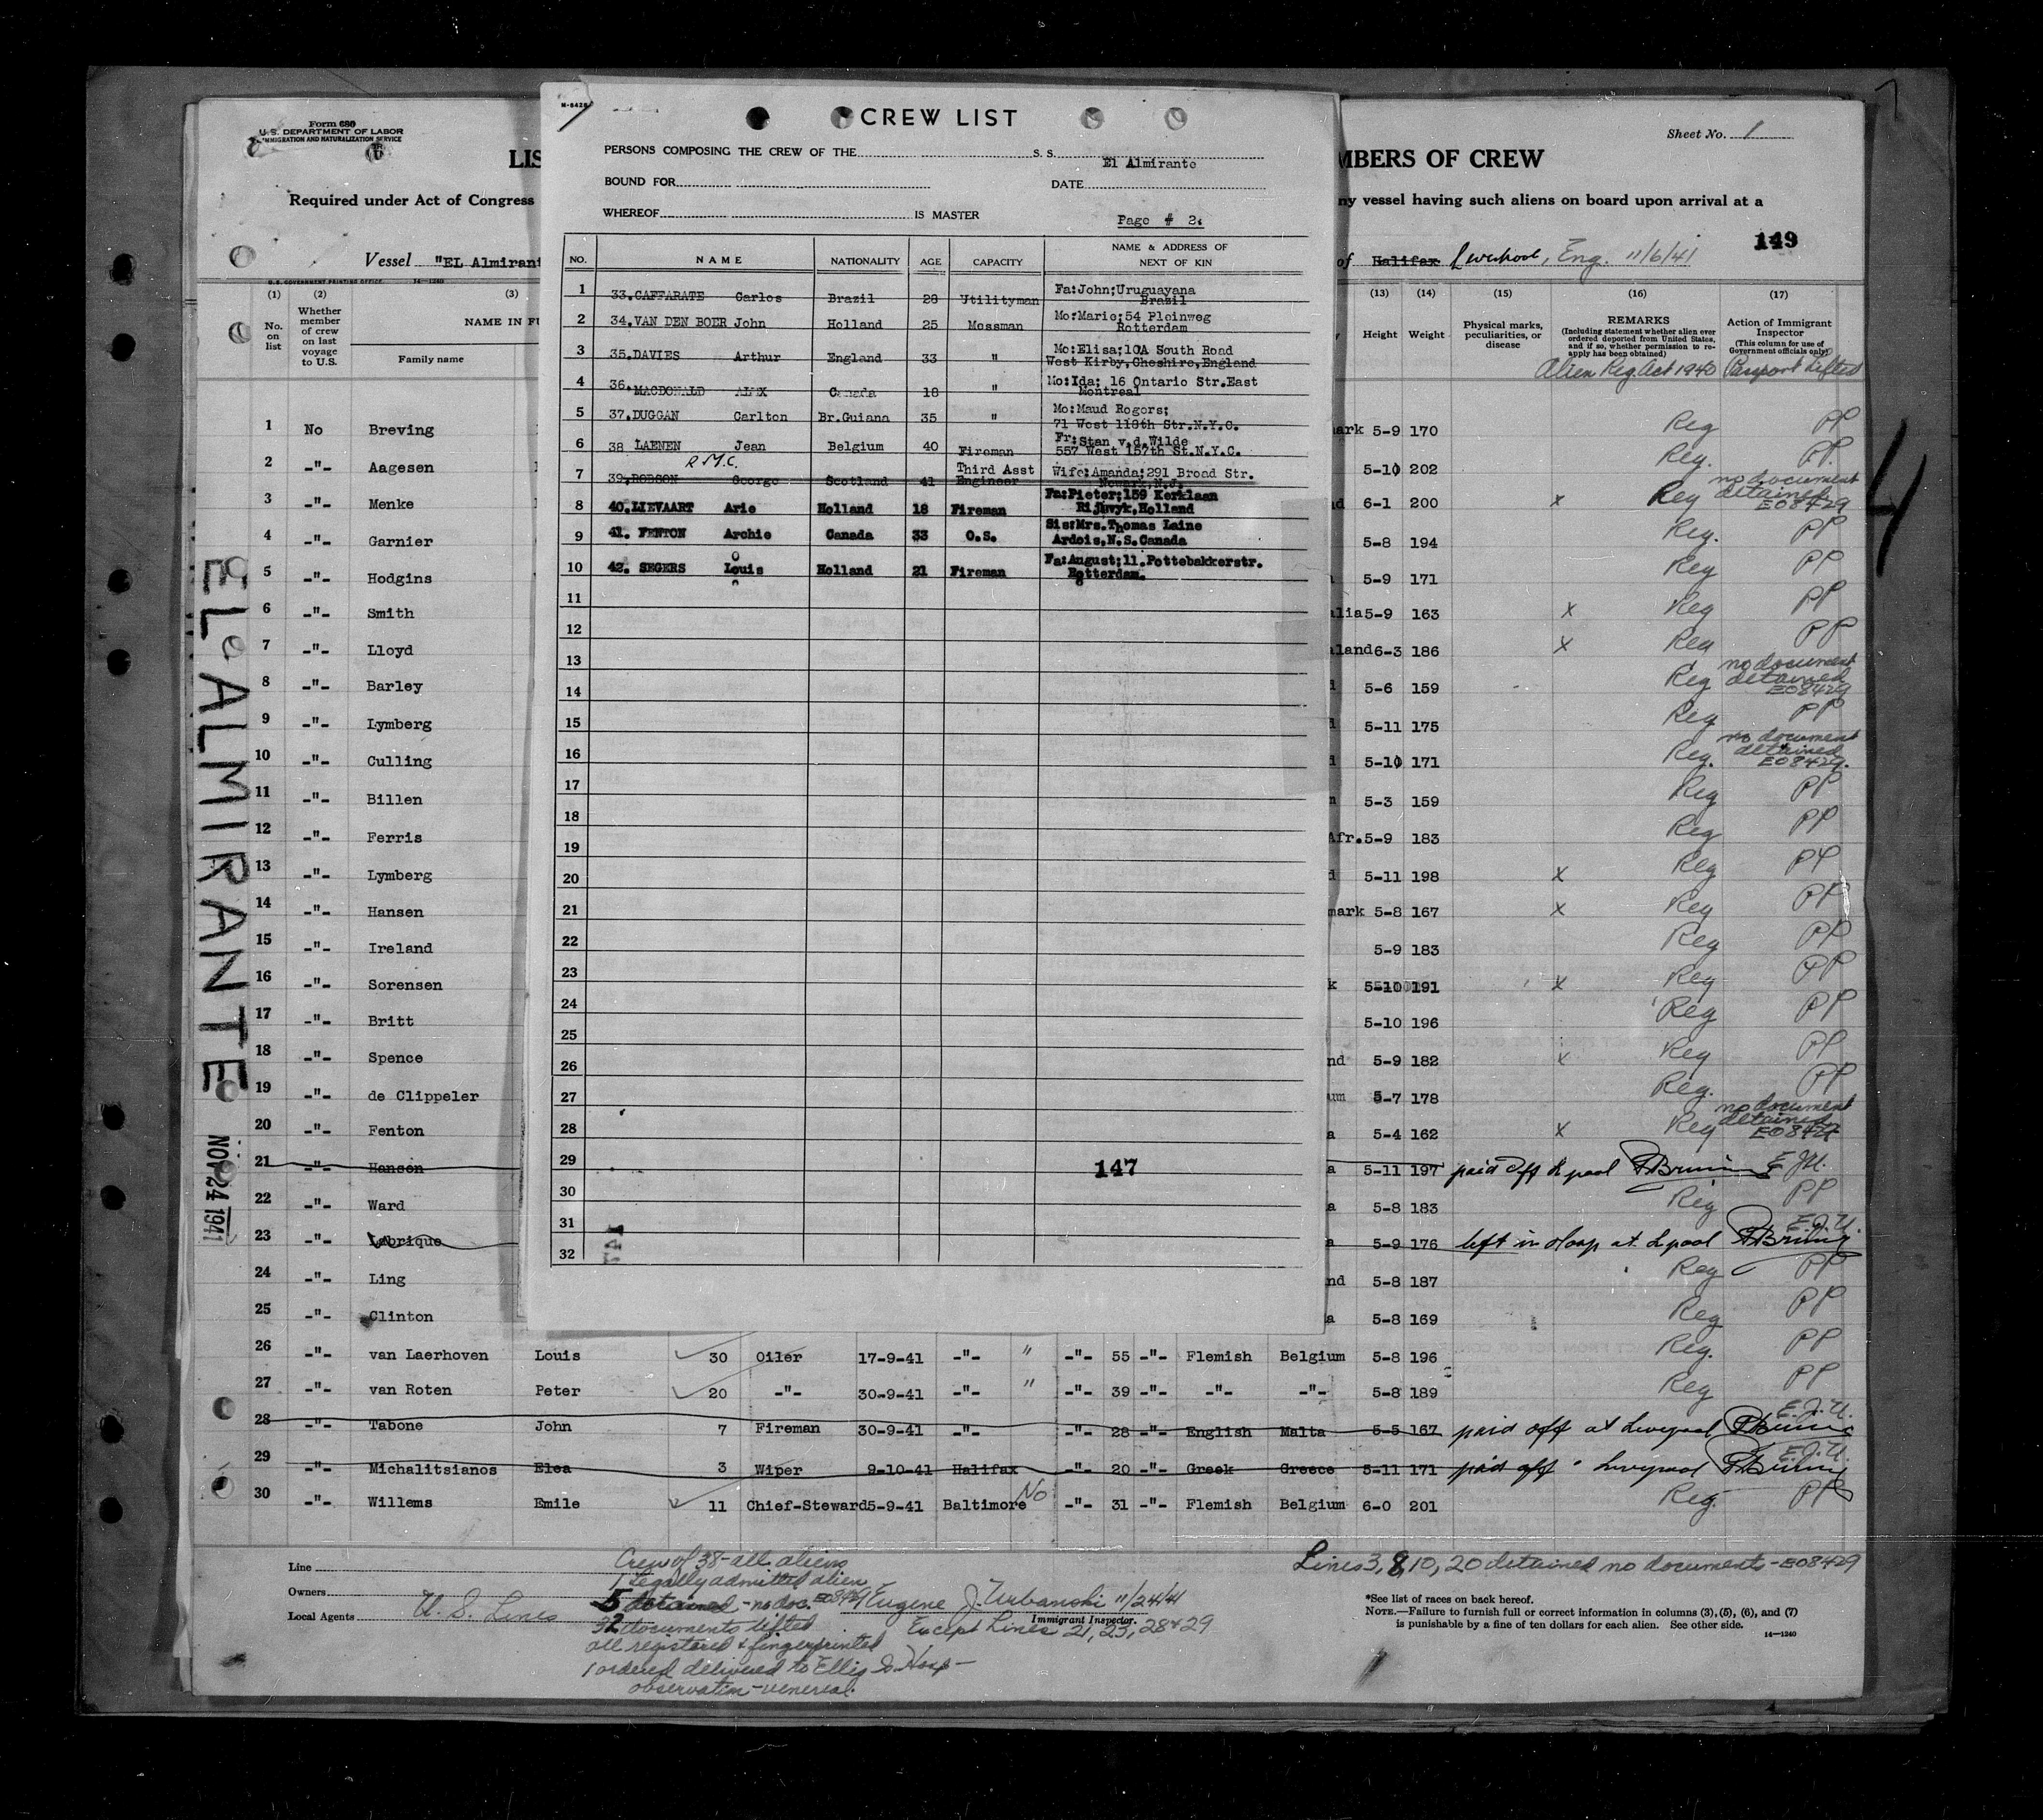 Form 680
U. S. DEPARTMENT OF LABOR
IMMIGRATION AND NATURALIZATION SERVICE
LIS
MBERS OF CREW
Sheet No. 1
Required under Act of Congress
ny vessel having such aliens on board upon arrival at a
149
Vessel "EL Almirant
of Halifax Liverpool, Eng. 11/6/41
U.S. GOVERNMENT PRINTING OFFICE 14—1240
(1) (2) (3) (13) (14) (15) (16) (17)
No. on list
Whether member of crew on last voyage to U.S.
NAME IN FU
Family name
Height Weight
Physical marks, peculiarities, or disease
REMARKS
(Including statement whether alien ever ordered deported from United States, and if so, whether permission to reapply has been obtained)
Alien Reg. Act 1940
Action of Immigrant Inspector
(This column for use of Government officials only)
Passport Lifted
M-8426
CREW LIST
PERSONS COMPOSING THE CREW OF THE S. S. El Almirante
BOUND FOR DATE
WHEREOF IS MASTER
Page # 2.
NO. NAME NATIONALITY AGE CAPACITY NAME & ADDRESS OF NEXT OF KIN
1 33.CAFFARATE Carlos Brazil 28 Utilityman Fa:John;Uruguayana Brazil
2 34.VAN DEN BOER John Holland 25 Messman Mo:Marie;54 Pleinweg Rotterdam
3 35.DAVIES Arthur England 33 " Mo:Elisa;10A South Road West Kirby,Cheshire,England
4 36.MACDONALD ALEX Canada 18 " Mo:Ida; 16 Ontario Str.East Montreal
5 37.DUGGAN Carlton Br.Guiana 35 " Mo:Maud Rogers; 71 West 118th Str.N.Y.C.
6 38 LAENEN Jean Belgium 40 Fireman Fr:Stan v.d.Wilde 557 West 157th St.N.Y.C.
R.M.C.
7 39.ROBSON George Scotland 41 Third Asst Engineer Wife:Amanda;291 Broad Str. Newark,N.J.
8 40.LIEVAART Arie Holland 18 Fireman Fa:Pieter;159 Kerklaan Rijswyk,Holland
9 41. FENTON Archie Canada 33 O.S. Sis:Mrs.Thomas Laine Ardois,N.S.Canada
10 42. SEGERS Louis Holland 21 Fireman Fa:August;11.Pottebakkerstr. Rotterdam.
11
12
13
14
15
16
17
18
19
20
21
22
23
24
25
26
27
28
29 147
30
31
32
EL ALMIRANTE
NOV 24 1941
1 No Breving mark 5-9 170 Reg PP
2 -"- Aagesen 5-10 202 Reg. PP.
3 -"- Menke d 6-1 200 x Reg no document detained E08429
4 -"- Garnier 5-8 194 Reg. PP
5 -"- Hodgins 5-9 171 Reg PP
6 -"- Smith alia 5-9 163 x Reg PP
7 -"- Lloyd land 6-3 186 x Reg PP
8 -"- Barley d 5-6 159 Reg no document detained E08429
9 -"- Lymberg d 5-11 175 Reg PP
10 -"- Culling d 5-10 171 Reg. no document detained E08429.
11 -"- Billen n 5-3 159 Reg PP
12 -"- Ferris Afr. 5-9 183 Reg PP
13 -"- Lymberg d 5-11 198 x Reg PP
14 -"- Hansen mark 5-8 167 x Reg PP
15 -"- Ireland 5-9 183 Reg PP
16 -"- Sorensen k 5-10 191 x Reg PP
17 -"- Britt 5-10 196 Reg PP
18 -"- Spence nd 5-9 182 x Reg PP
19 -"- de Clippeler um 5-7 178 Reg. PP
20 -"- Fenton a 5-4 162 x Reg no document detained E08429
21 -"- Hanson a 5-11 197 paid off Lpool E.J.U.
22 -"- Ward a 5-8 183 Reg PP
23 -"- Labrique a 5-9 176 left in hosp at Lpool E.J.U.
24 -"- Ling nd 5-8 187 Reg PP
25 -"- Clinton a 5-8 169 Reg PP
26 -"- van Laerhoven Louis 30 Oiler 17-9-41 -"- " -"- 55 -"- Flemish Belgium 5-8 196 Reg. PP
27 -"- van Roten Peter 20 -"- 30-9-41 -"- " -"- 39 -"- -"- -"- 5-8 189 Reg PP
28 -"- Tabone John 7 Fireman 30-9-41 -"- -"- 28 -"- English Malta 5-5 167 paid off at Liverpool E.J.U.
29 -"- Michalitsianos Elea 3 Wiper 9-10-41 Halifax -"- 20 -"- Greek Greece 5-11 171 paid off " Liverpool E.J.U.
30 -"- Willems Emile 11 Chief-Steward 5-9-41 Baltimore No -"- 31 -"- Flemish Belgium 6-0 201 Reg. PP
Line
Owners
Local Agents U. S. Lines
Crew of 38 - all aliens
1 Legally admitted alien
5 detained - no doc. E08429
32 documents lifted
all registered & fingerprinted
1 ordered delivered to Ellis Is Hosp -
observation - venereal.
Eugene J. Urbanski 11/24/41
Immigrant Inspector.
Except Lines 21, 23, 28 & 29
Lines 3, 8, 10, 20 detained no documents - E08429
*See list of races on back hereof.
NOTE.—Failure to furnish full or correct information in columns (3), (5), (6), and (7)
is punishable by a fine of ten dollars for each alien. See other side.
14—1240